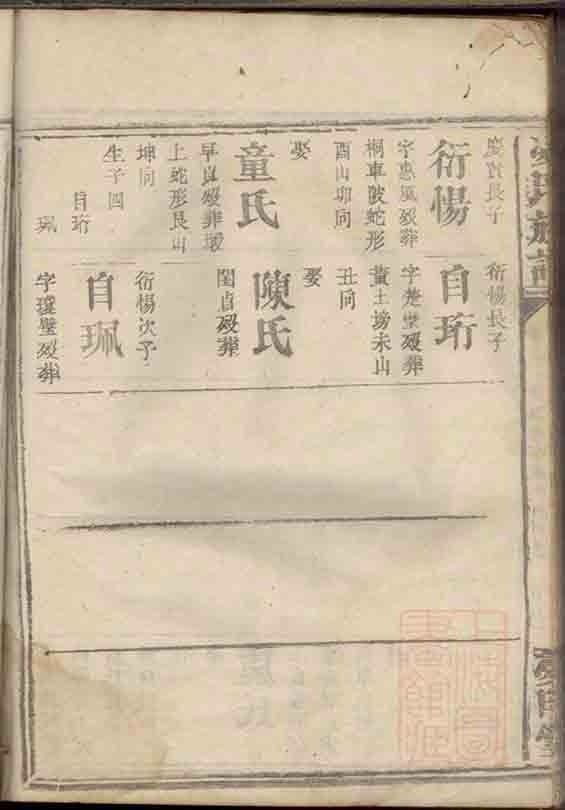 慶賓長子
衍惕
字惠風歿葬
桐車陂蛇形
酉山卯向
娶
童氏
早良歿葬堰
上蛇形艮山
坤向
生子四
自珩
珮
衍惕長子
自珩
字楚璧歿葬
黃土塝未山
丑向
娶
陳氏
閨貞歿葬
衍惕次子
自珮
字璞璧歿葬
氏族譜